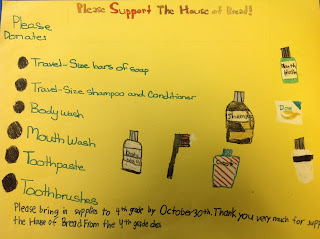 Please Support The House of Bread!
Please
Donates
Travel-Size bars of soap
Travel-Size shampoo and Conditioner
Body wash
Mouth Wash
Toothpaste
Toothbrushes
Mouth
Wash
Dove
Soap
Please bring in supplies to 4th grade by October 30th. Thank you very much for supp
the House of Bread. From the 4th grade